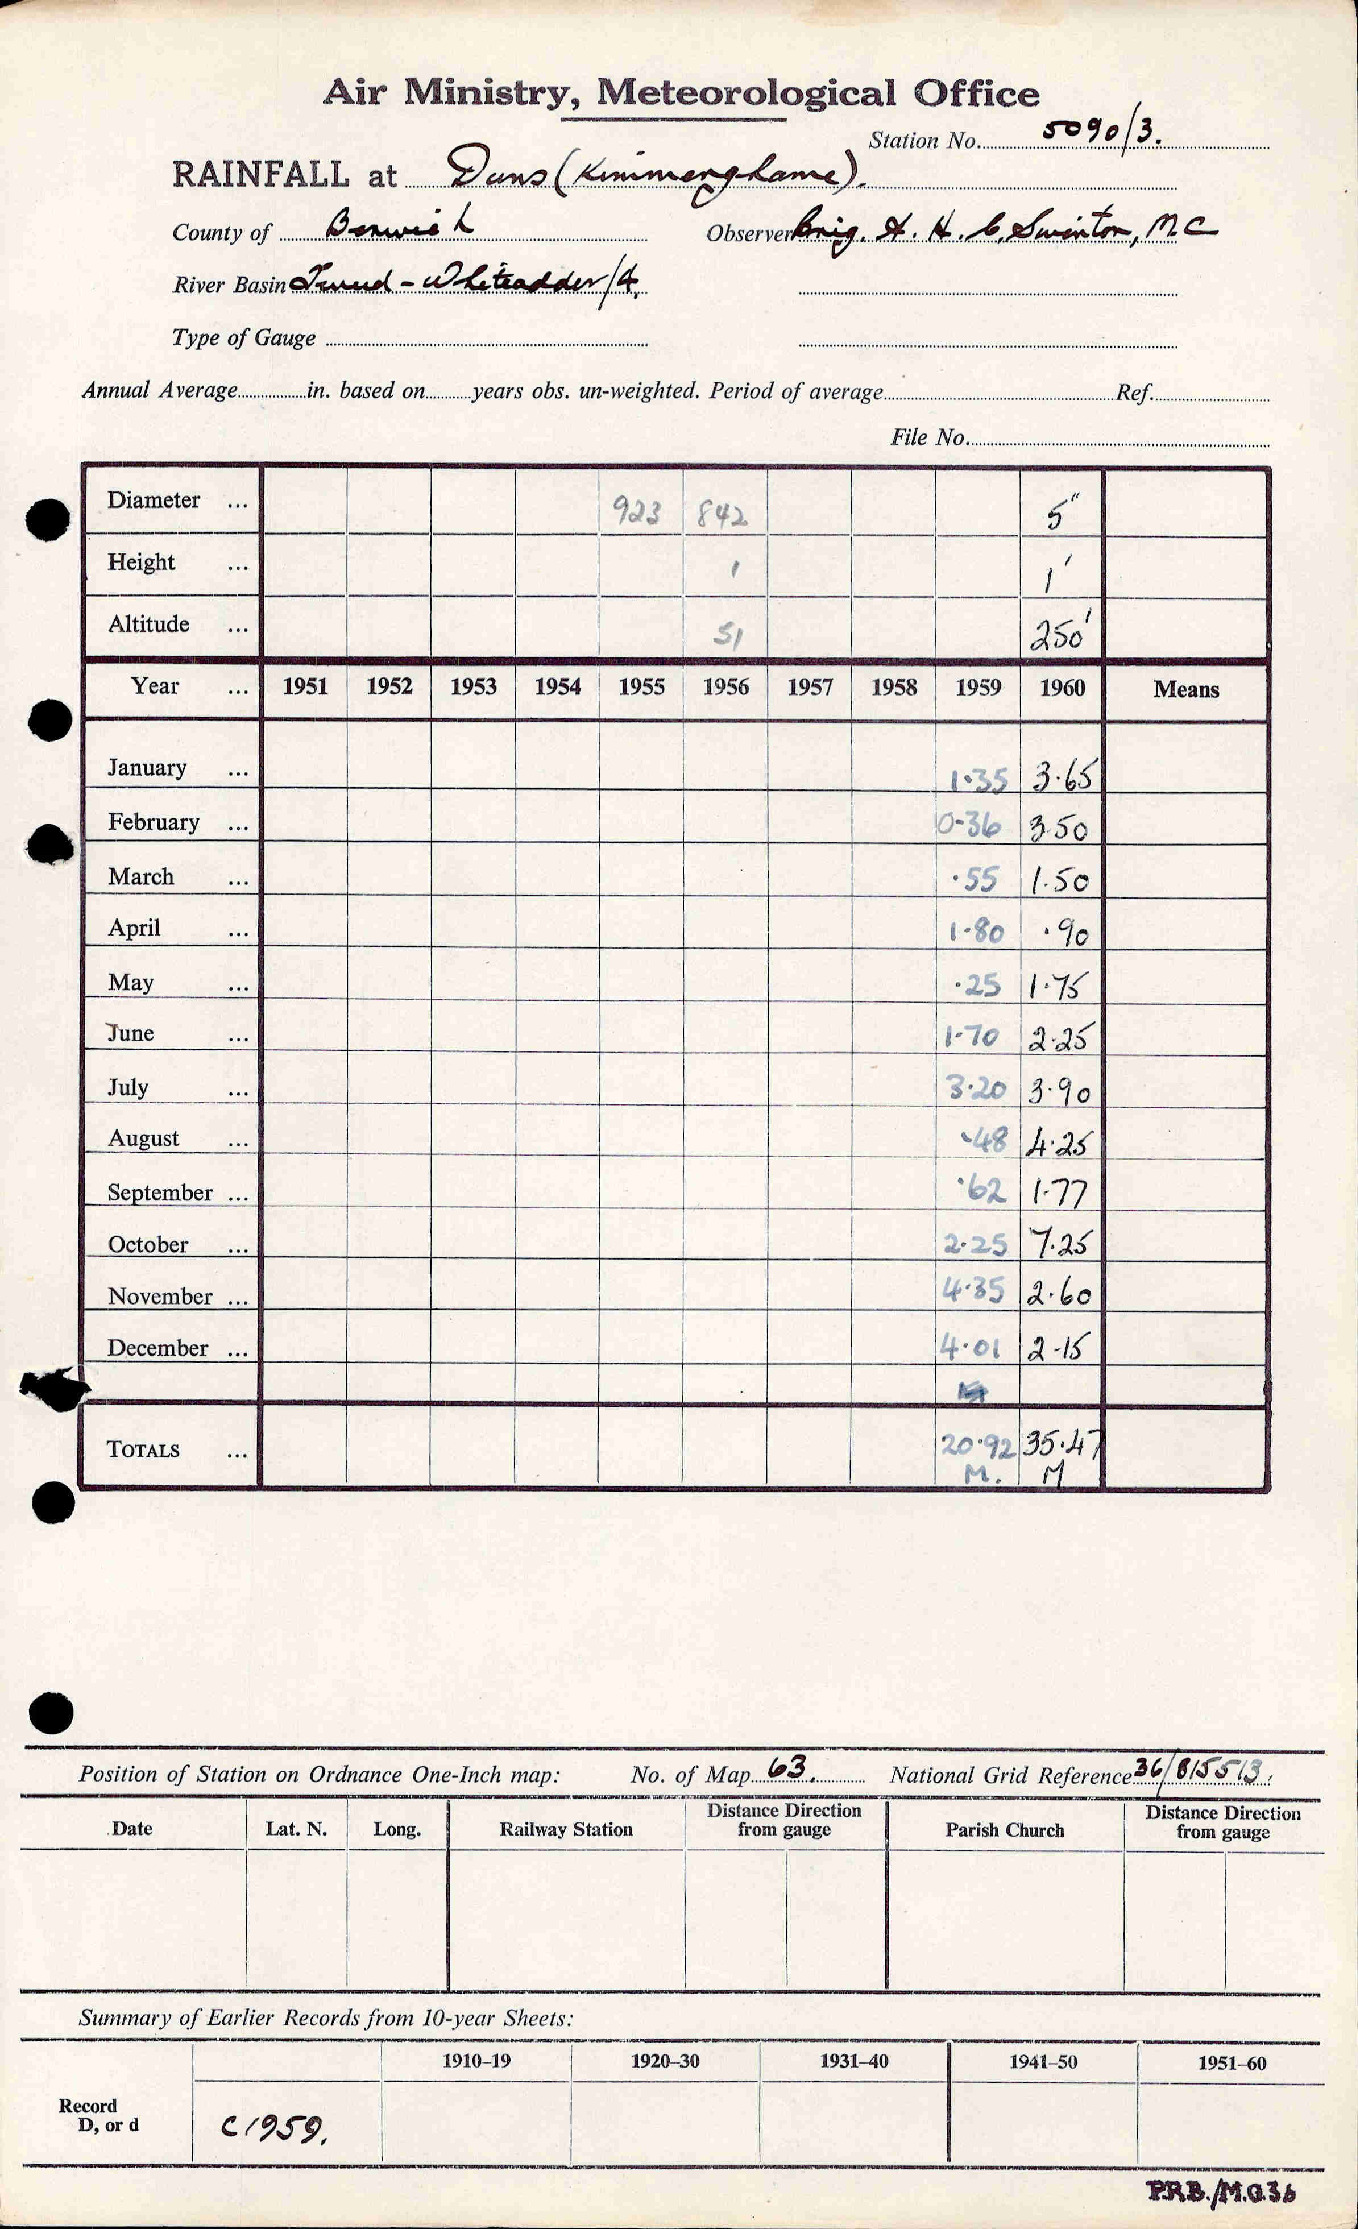 Air Ministry, Meteorological Office
Station No. 5090/3.
RAINFALL at Duns (Kimmerghame).
County of Berwick Observer Brig. A. H. C. Swinton, M C
River Basin Tweed - Whiteadder/4.
Type of Gauge
Annual Average in. based on years obs. un-weighted. Period of average Ref.
File No.
Diameter ... 923 842 5"
Height ... 1 1'
Altitude ... 51 250'
Year ... 1951 1952 1953 1954 1955 1956 1957 1958 1959 1960 Means
January ... 1·35 3·65
February ... 0·36 3·50
March ... ·55 1·50
April ... 1·80 ·90
May ... ·25 1·75
June ... 1·70 2·25
July ... 3·20 3·90
August ... ·48 4·25
September ... ·62 1·77
October ... 2·25 7·25
November ... 4·35 2·60
December ... 4·01 2·15
TOTALS ... 20·92 35·47
M. M
Position of Station on Ordnance One-Inch map: No. of Map 63. National Grid Reference 36/815513.
Date Lat. N. Long. Railway Station Distance Direction from gauge Parish Church Distance Direction from gauge
Summary of Earlier Records from 10-year Sheets:
1910–19 1920–30 1931–40 1941–50 1951–60
Record
D, or d C1959.
P.R.B./M.O.36